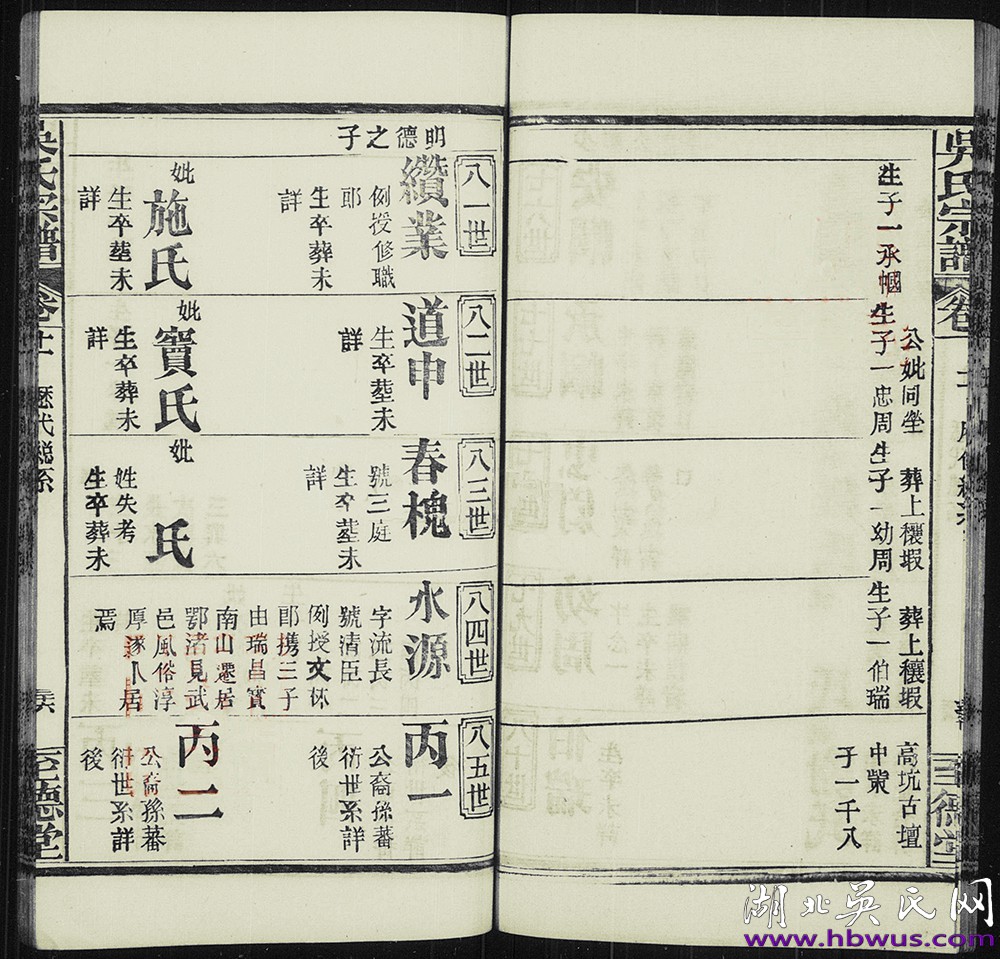 吳氏宗譜
卷
生子一承幗
公妣同塋
生子一忠周
葬上穰塅
生子一幼周
葬上穰塅
生子一伯瑞
高坑古壇
中葉
子一千八
明德之子
八一世
纘業
例授修職
郎
生卒葬未
詳
妣
施氏
生卒塟未
詳
八二世
道申
生卒塟未
詳
妣
竇氏
生卒葬未
詳
八三世
春槐
號三庭
生卒塟未
詳
妣
氏
姓失考
生卒葬未
八四世
水源
字流長
號清臣
例授文林
郎携三子
由瑞昌實
南山遷居
鄂渚見武
邑風俗淳
厚遂卜居
焉
八五世
丙一
公裔孫蕃
衍世系詳
後
丙二
公裔孫蕃
衍世系詳
後
吳氏宗譜
卷十一
歷代總系
至德堂
湖北吳氏网
www.hbwus.com